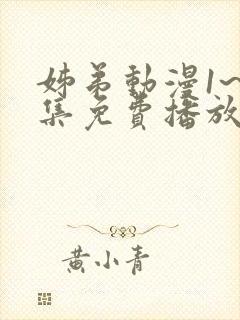 姊弟動漫1~
集免費播放
黃小青